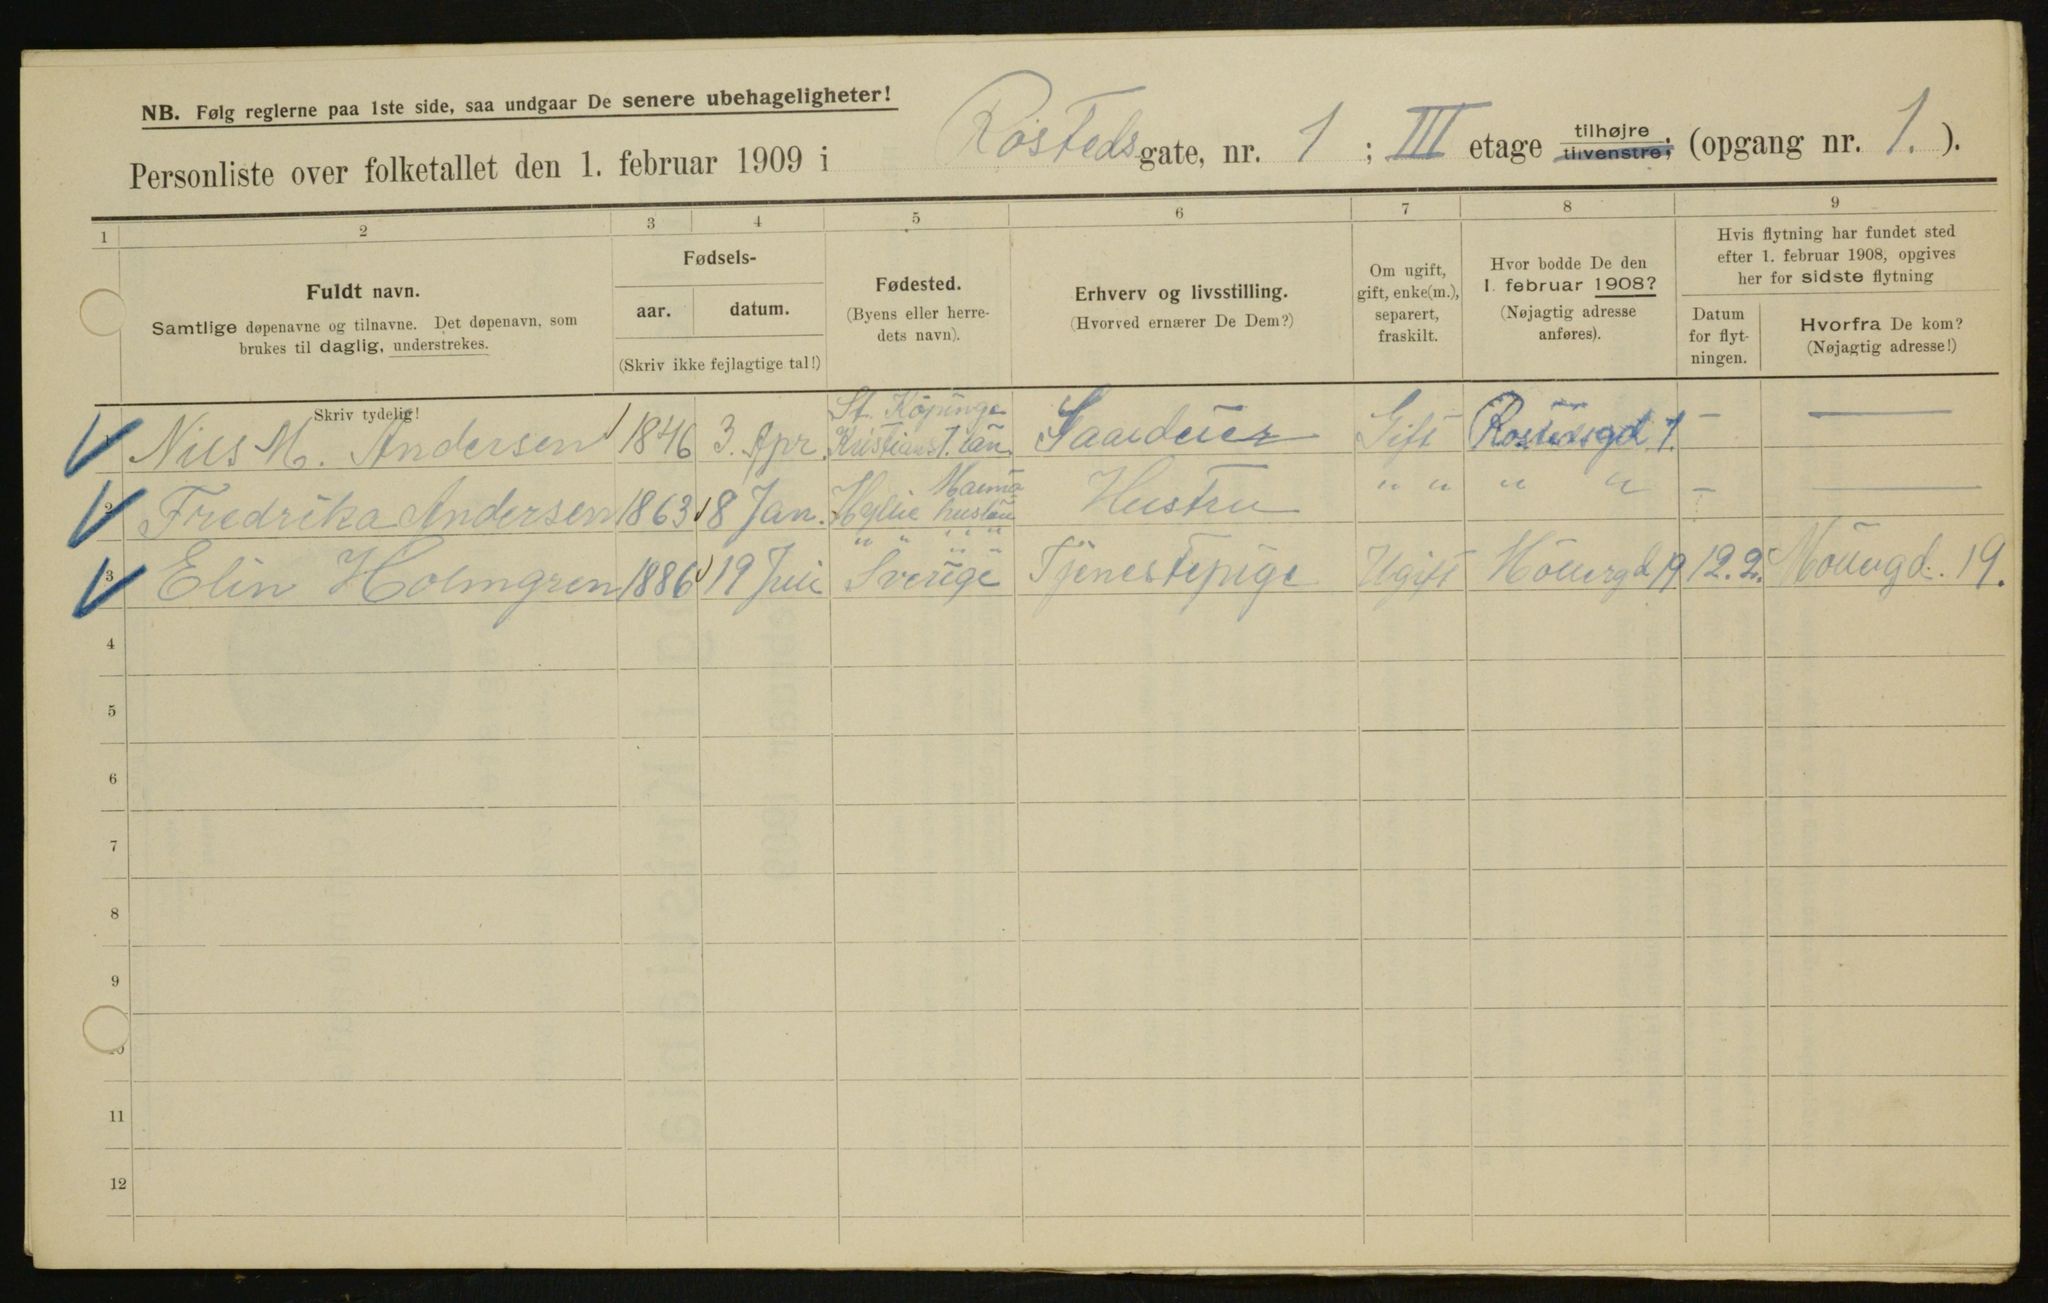 NB. Følg reglerne paa 1ste side, saa undgaar De senere ubehageligheter!
Personliste over folketallet den 1. februar 1909 i Rosteds gate, nr. 1 ; III etage tilhøjre tilvenstre; (opgang nr. 1. ).
1 2 3 4 5 6 7 8 9
Fuldt navn.
Samtlige døpenavne og tilnavne. Det døpenavn, som
brukes til daglig, understrekes.
Fødsels-
aar. datum.
(Skriv ikke fejlagtige tal!)
Fødested.
(Byens eller herre-
dets navn).
Erhverv og livsstilling.
(Hvorved ernærer De Dem?)
Om ugift,
gift, enke(m.),
separert,
fraskilt.
Hvor bodde De den
1. februar 1908?
(Nøjagtig adresse
anføres).
Hvis flytning har fundet sted
efter 1. februar 1908, opgives
her for sidste flytning
Datum
for flyt-
ningen.
Hvorfra De kom?
(Nøjagtig adresse!)
Skriv tydelig!
1 Nils M. Andersen 1846 3. Apr. St. Köpinge Kristianst. län Gift Rostedsgd 1. — —
2 Fredrika Andersen 1863 8 Jan. Hyllie Malmö huslän Hustru " " " " — —
" " " "
3 Elin Holmgren 1886 19 Juli Sverige Tjenestepige Ugift Möllergd 19 12.2. Möllergd. 19.
4
5
6
7
8
9
10
11
12